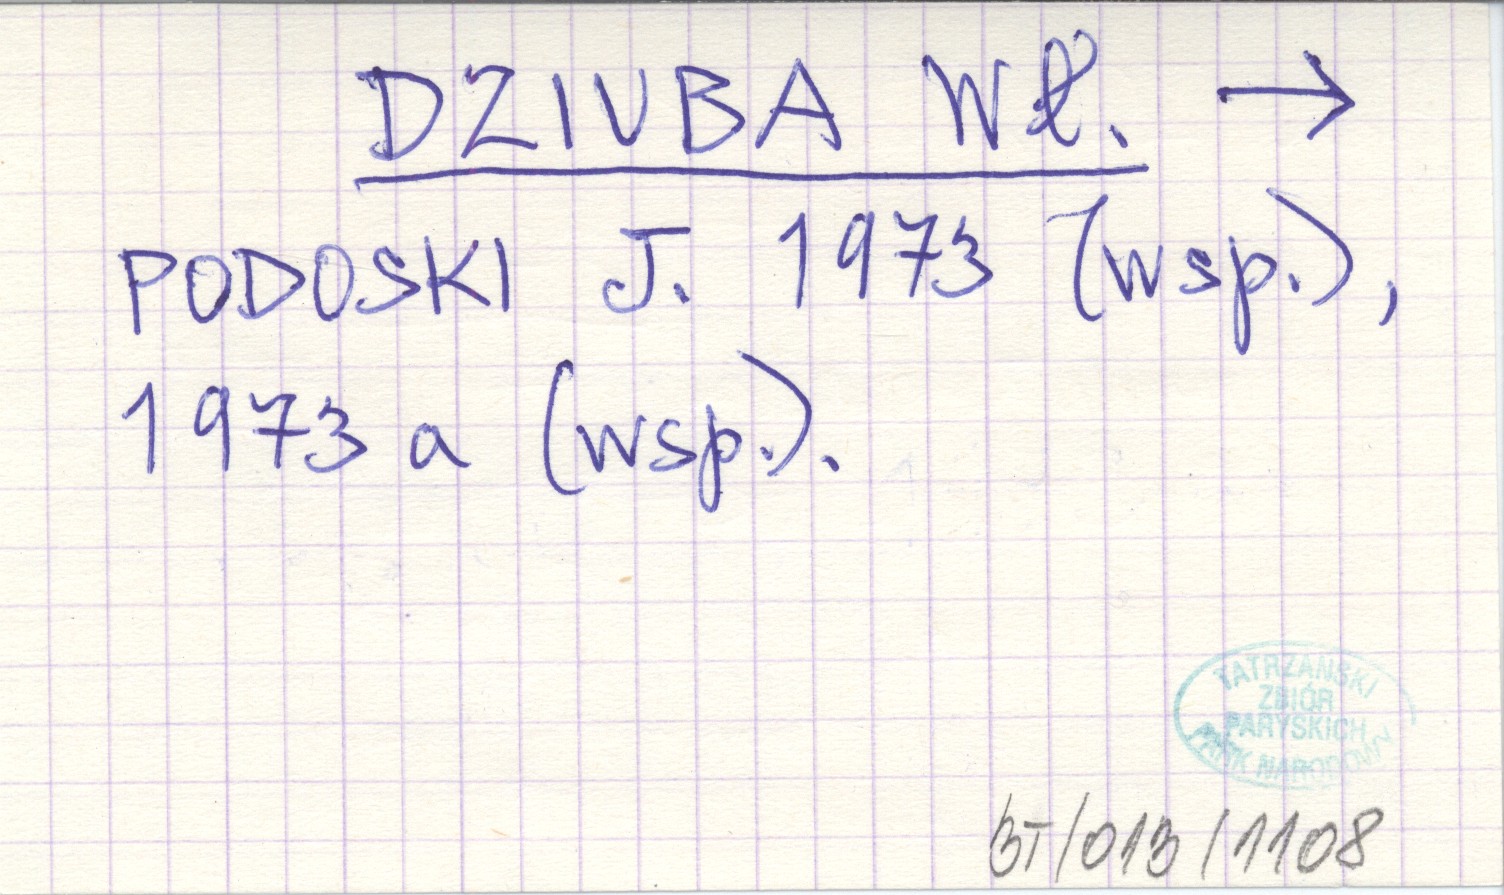 DZIUBA Wł. →
PODOSKI J. 1973 (wsp.),
1973 a (wsp.).
TATRZAŃSKI
ZBIÓR
PARYSKICH
PARK NARODOWY
BT/013/1108